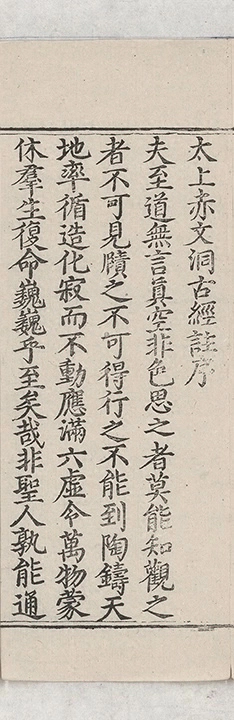 太上赤文洞古經註序
夫至道無言真空非色思之者莫能知觀之
者不可見賾之不可得行之不能到陶鑄天
地率循造化寂而不動應滿六虛令萬物蒙
休羣生復命巍巍乎至矣哉非聖人孰能通